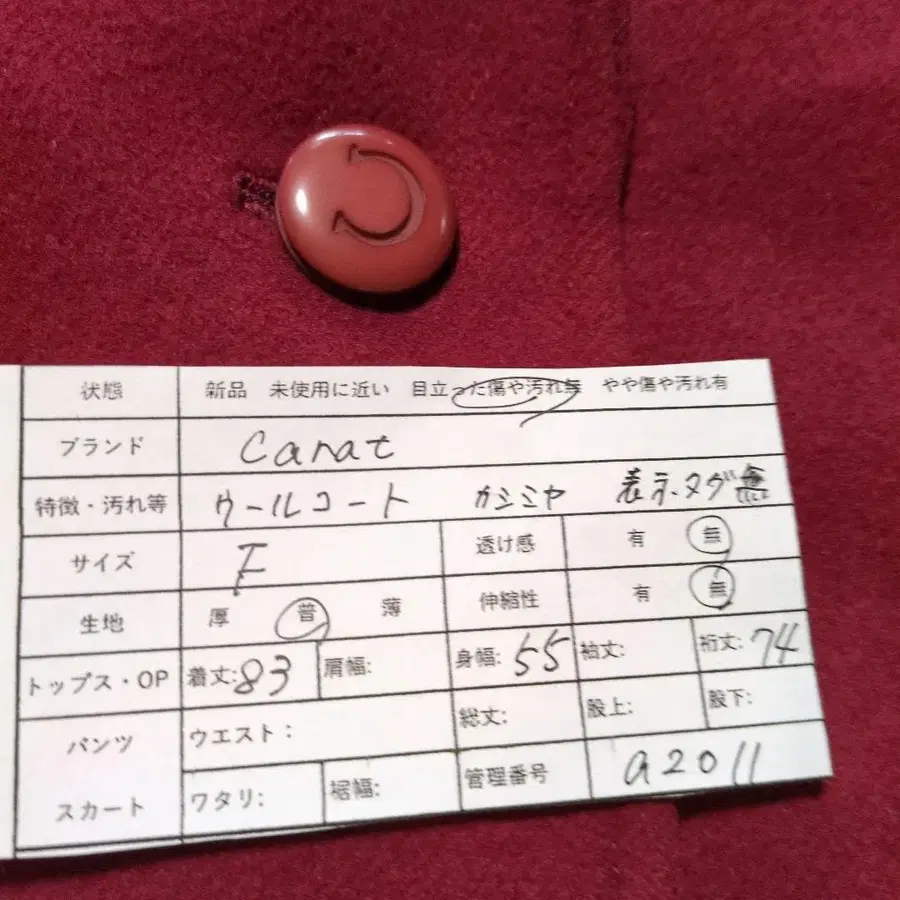 状態 新品 未使用に近い 目立った傷や汚れ無 やや傷や汚れ有
ブランド Canat
特徴・汚れ等 ウールコート カシミヤ 表示タグ無
サイズ F 透け感 有 無
生地 厚 普 薄 伸縮性 有 無
トップス・OP 着丈:83 肩幅: 身幅:55 袖丈: 裄丈:74
パンツ ウエスト: 総丈: 股上: 股下:
スカート ワタリ: 裾幅: 管理番号 a2011